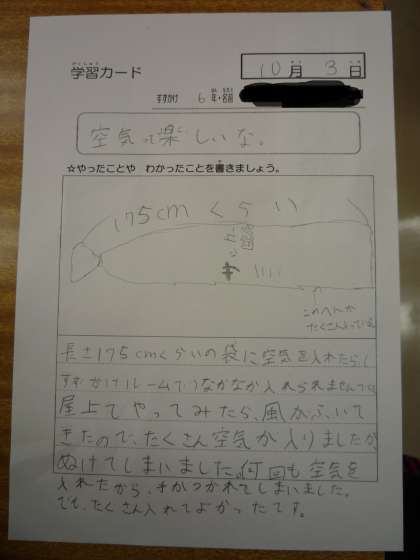 学習カード
10月3日
すずかけ 6年・名前
空気って楽しいな。
☆やったことや わかったことを書きましょう。
175cmくらい
このへんが
たくさん入っている
長さ175cmくらいの袋に空気を入れたら、
すずかけルームでうなかなか入れられませんでした
屋上でやってみたら、風がふいて
きたので、たくさん空気が入りましたが、
ぬけてしまいました。何回も空気を
入れたから、手がつかれてしまいました。
でも、たくさん入れてよかったです。